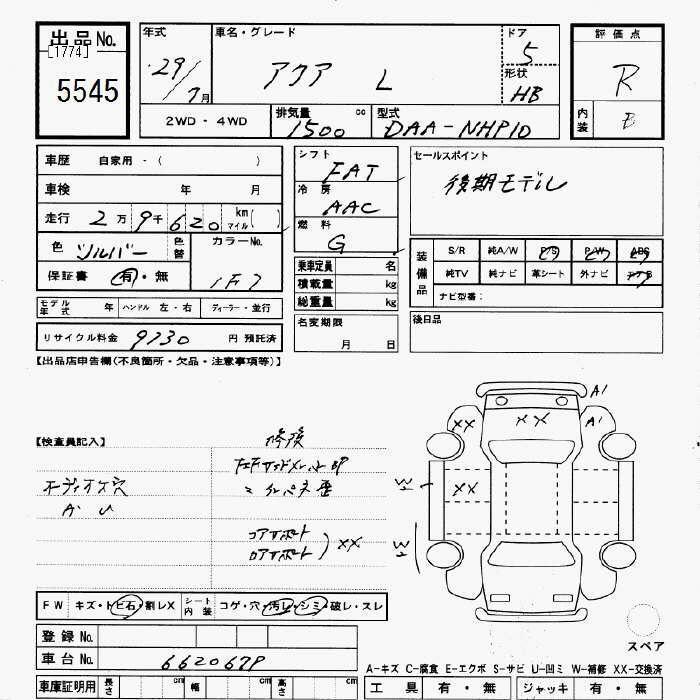 出品No.
[1774]
5545
年式
29/7月
車名・グレード
アクア L
ドア
5
形状
HB
評価点
R
内装
B
2WD - 4WD
排気量 cc
1500
型式
DAA-NHP10
車歴 自家用・( )
車検 年 月
走行 2万9千620 km マイル( )
色 シルバー 色替
カラーNo.
1F7
保証書 有・無
モデル年式 年 ハンドル 左・右 ディーラー・並行
リサイクル料金 9730 円 預託済
シフト
FAT
冷房
AAC
燃料
G
乗車定員 名
積載量 kg
総重量 kg
名変期限
月 日
セールスポイント
後期モデル
装備品
S/R 純A/W P/S P/W ABS
純TV 純ナビ 革シート 外ナビ エアB
ナビ型番:
後日品
【出品店申告欄(不良箇所・欠品・注意事項等)】
【検査員記入】
修復
オーディオ穴
A U
コアサポート
ロアサポート
XX
XX
XX
XX
A1
A1
W
W
FW キズ・トビ石・割レX
シート内装 コゲ・穴・汚レ・シミ・破レ・スレ
登録No.
車台No. 6620679
車庫証明用 長さ cm 幅 cm 高さ cm
スペア
A-キズ C-腐食 E-エクボ S-サビ U-凹ミ W-補修 XX-交換済
工具 有・無 ジャッキ 有・無